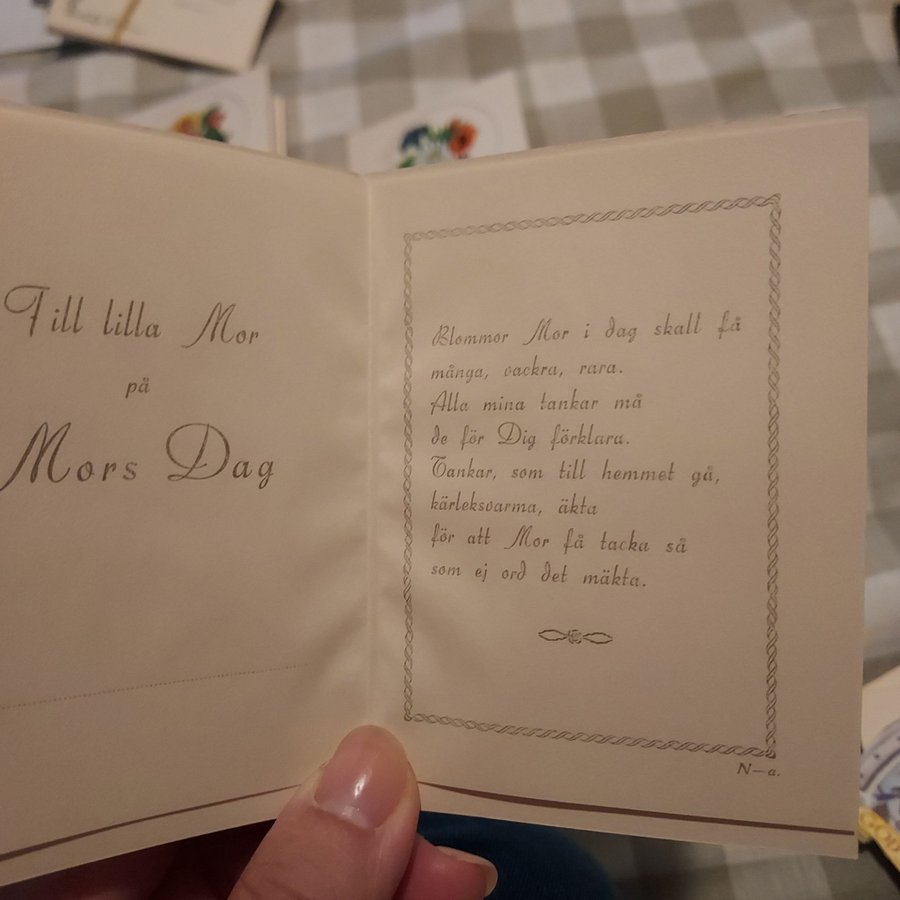 Till lilla Mor
på
Mors Dag
Blommor Mor i dag skall få
många, vackra, rara.
Alla mina tankar må
de för Dig förklara.
Tankar, som till hemmet gå,
kärleksvarma, äkta
för att Mor få tacka så
som ej ord det mäkta.
N—a.